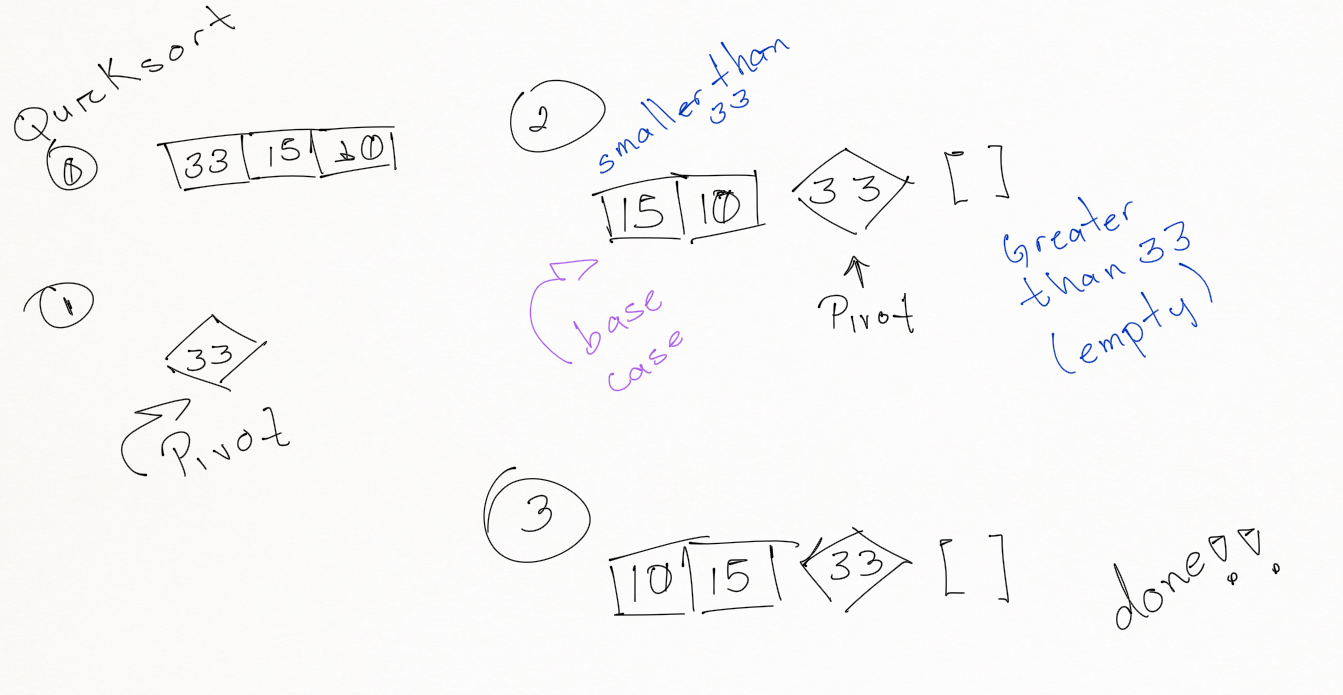 Quicksort
0
33 15 10
1
33
Pivot
2
smaller than
33
15 10 33 [ ]
Pivot
Greater
than 33
(empty)
base
case
3
10 15 33 [ ]
done!!